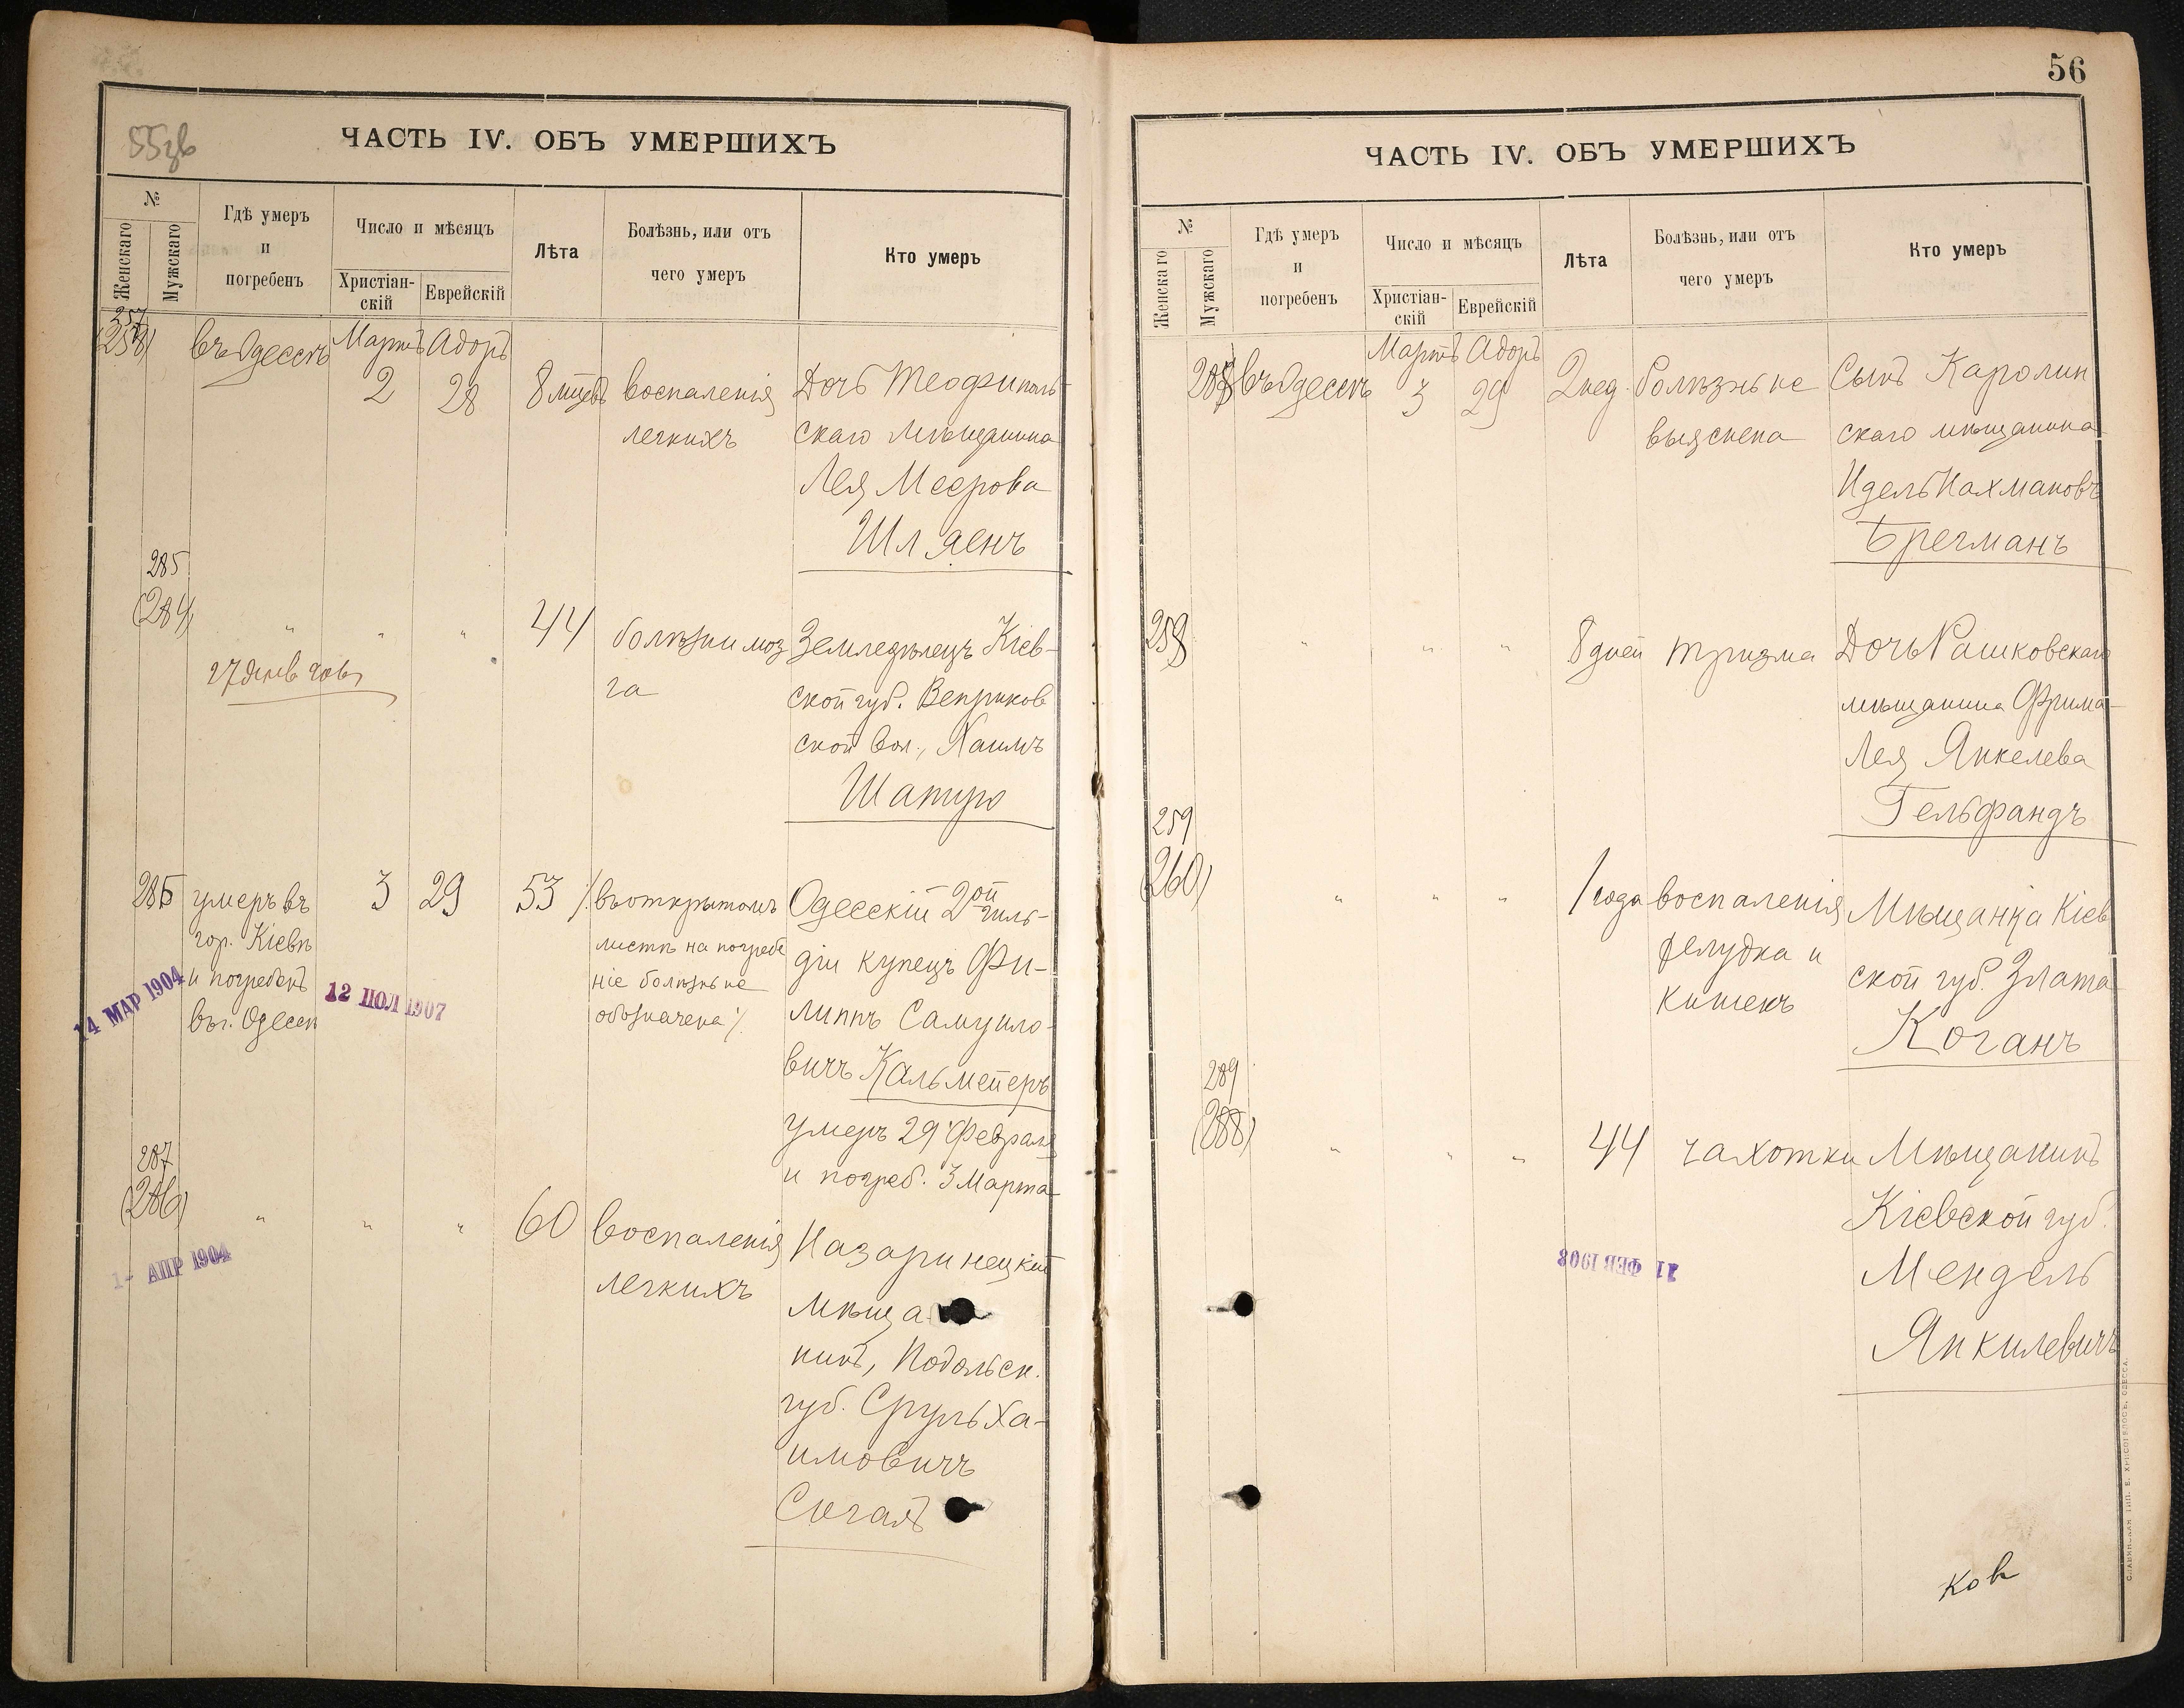 55зв
ЧАСТЬ IV. ОБЪ УМЕРШИХЪ
№
Женскаго
Мужскаго
Гдѣ умеръ
и
погребенъ
Число и мѣсяцъ
Христіан-
скій
Еврейскій
Лѣта
Болѣзнь, или отъ
чего умеръ
Кто умеръ
257
(258)
въ Одессѣ
Мартъ Адоръ
2 28
8 мцевъ
воспаленія
легкихъ
Дочь Теофиполь-
скаго мѣщанина
Лея Меерова
Шляенъ
285
(284)
" " "
44
болѣзни моз
га
Земледѣлецъ Кіев-
ской губ. Веприков
ской вол., Хаимъ
Шапиро
286
умеръ въ
гор. Кіевѣ
и погребенъ
въ г. Одессѣ
3 29
53
% въ открытомъ
листѣ на погребе
ніе болѣзнь не
обозначена %
Одесскій 2ой гиль-
діи купецъ Фи-
липпъ Самуило-
вичъ Кальмейеръ
умеръ 29 Февраля
и погреб. 3 Марта
14 МАР 1904
12 ІЮЛ 1907
287
(286)
" " "
60
воспаленія
легкихъ
Назаринецкій
мѣща-
нинъ, Подольск.
губ. Сруль Ха-
имовичъ
Сегалъ
1- АПР 1904
56
ЧАСТЬ IV. ОБЪ УМЕРШИХЪ
№
Женскаго
Мужскаго
Гдѣ умеръ
и
погребенъ
Число и мѣсяцъ
Христіан-
скій
Еврейскій
Лѣта
Болѣзнь, или отъ
чего умеръ
Кто умеръ
288
въ Одессѣ
Мартъ Адоръ
3 29
2 нед.
болѣзнь не
выяснена
Сынъ Каролин
скаго мѣщанина
Идель Нахмановъ
Брегманъ
258
" " "
8 дней
тризма
Дочь Рашковскаго
мѣщанина Фрима-
Лея Янкелева
Гельфандъ
259
(260)
" " "
1 года
воспаленія
желудка и
кишекъ
Мѣщанка Кіев
ской губ. Злата
Коганъ
289
(288)
" " "
44
чахотки
Мѣщанинъ
Кіевской губ.
Мендель
Янкилевичъ
11 ФЕВ 1908
ков